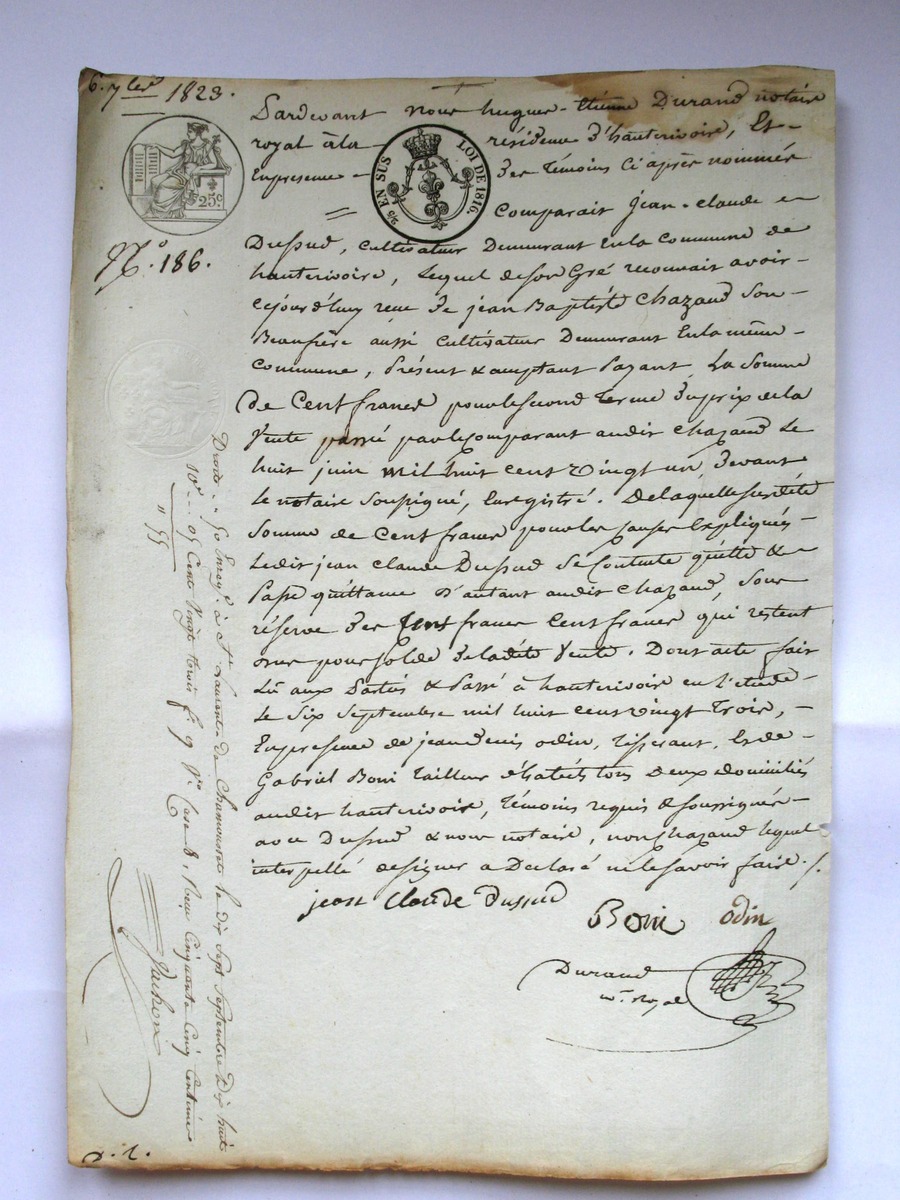 6. 7bre 1823.
Pardevant nous hugues-Etienne Durand notaire
royal à la résidence d'hauterivoire, Et
En presence des Témoins Ci après nommés
25c
25/c EN SUS LOI DE 1816.
Comparait Jean-claude
Dussud, cultivateur Demeurant En la Commune de
N.º 186.
hauterivoire, Lequel de son Gré reconnait avoir
cejourd'huy reçu de jean Baptiste Chazaud Son
Beaufrère aussi Cultivateur Demeurant En la même
Commune, Présent & acceptant Payant, La Somme
de Cent francs pour le second Terme du prix de la
Vente passé par le Comparant audit Chazaud Le
huit juin mil huit cent vingt un, devant
Le notaire Soussigné, Enregistré. De laquelle susdite
Somme de Cent francs pour les Causes Expliqués
Ledit jean Claude Dussud se Contente quitte &
Passe quittance d'autant audit Chazaud, sous
réserve des francs Cent francs qui restent
pour solde de ladite Vente. Dont acte fait
Lû aux Parties & Passé à hauterivoire en L'étude
Le Six Septembre mil huit cent vingt Trois,
En presence de jean denis odin, Tisserant, Et de
Gabriel Boni Tailleur d'habits tous Deux domiciliés
audit hauterivoire, Témoins requis & soussignés
avec Dussud & nous notaire, non Chazaud lequel
interpellé de signer a Déclaré ne le savoir faire ./.
jean Claude Dussud
Boni odin
Durand
nre. Royal
Droits 50 Enregé. à St Laurent de Chamousset le dix Sept Septembre dix huit
10e 05 Cent Vingt trois fº 9 Vº Case 8, Reçu Cinquante Cinq Centimes
" 55